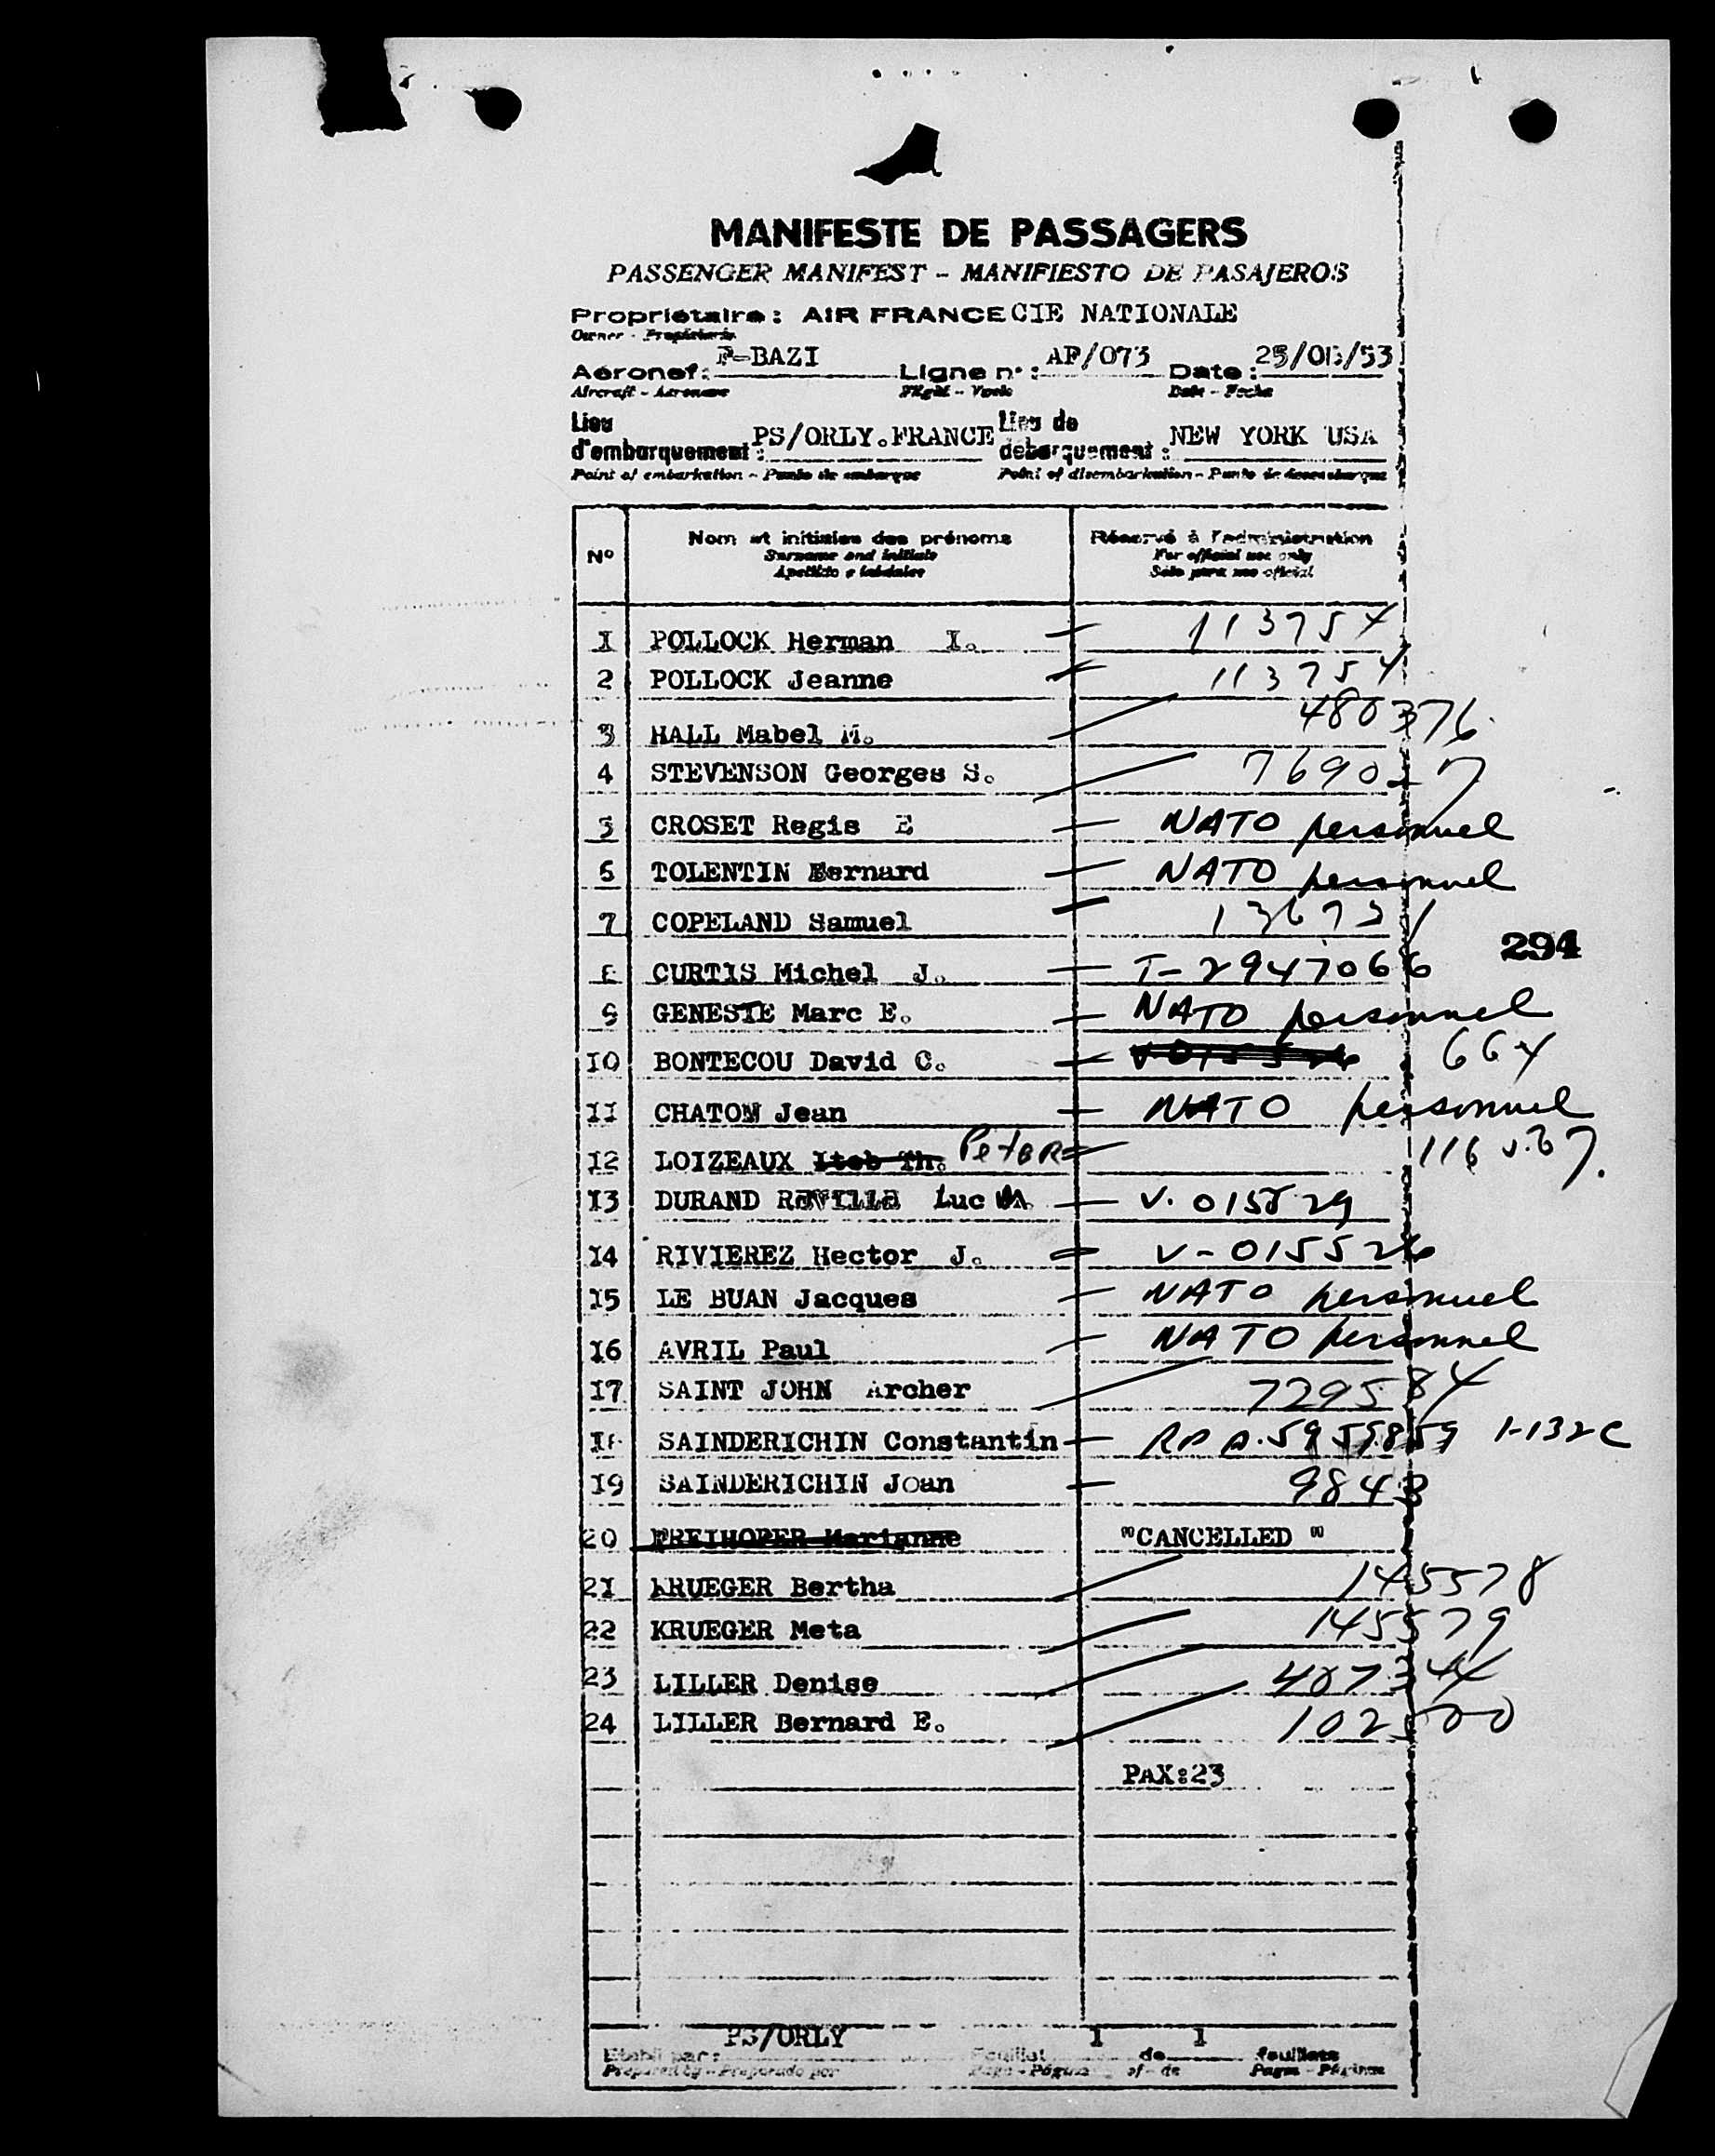 MANIFESTE DE PASSAGERS
PASSENGER MANIFEST - MANIFIESTO DE PASAJEROS
Propriétaire : AIR FRANCE CIE NATIONALE
Owner - Propietario
Aéronef : F-BAZI Ligne n° : AF/073 Date : /53
Aircraft - Aeronave Flight - Vuelo Date - Fecha
Lieu d'embarquement : PS/ORLY.FRANCE Lieu de débarquement : NEW YORK USA
Point of embarkation - Punto de embarque Point of disembarkation - Punto de desembarque
N° Nom et initiales des prénoms Réservé à l'administration
Surname and initials For official use only
Apellido e iniciales Sólo para uso oficial
1 POLLOCK Herman I. 113754
2 POLLOCK Jeanne 113754
3 HALL Mabel M. 480376
4 STEVENSON Georges S.
5 CROSET Regis E NATO personnel
6 TOLENTIN Bernard NATO personnel
7 COPELAND Samuel
294
8 CURTIS Michel J. T-2947066
9 GENESTE Marc E. NATO personnel
10 BONTECOU David C. 664
11 CHATON Jean NATO personnel
12 LOIZEAUX Peter
13 DURAND REVILLE Luc M.
14 RIVIEREZ Hector J. V-015526
15 LE BUAN Jacques NATO personnel
16 AVRIL Paul NATO personnel
17 SAINT JOHN Archer 729584
18 SAINDERICHIN Constantin 1-132C
19 SAINDERICHIN Joan 9843
20 FREIHOFER Marianne "CANCELLED "
21 KRUEGER Bertha 145578
22 KRUEGER Meta 145579
23 LILLER Denise 407344
24 LILLER Bernard E. 102500
PAX:23
PS/ORLY 1 1
Etabli par : Feuillet de feuillets
Prepared by - Preparado por Page - Página of - de Pages - Páginas